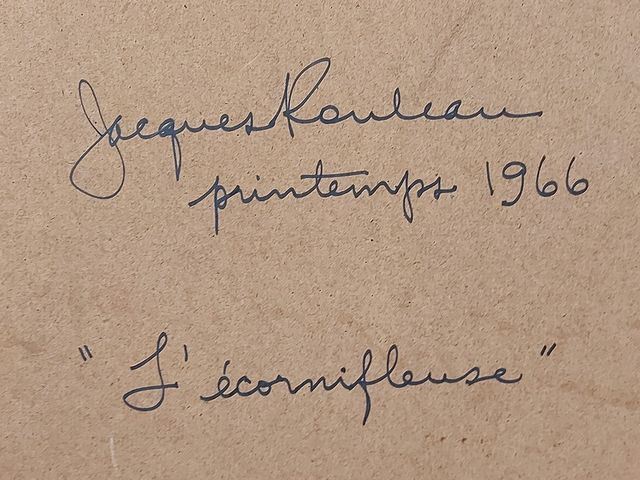 Jacques Rouleau
printemps 1966
"L'écornifleuse"